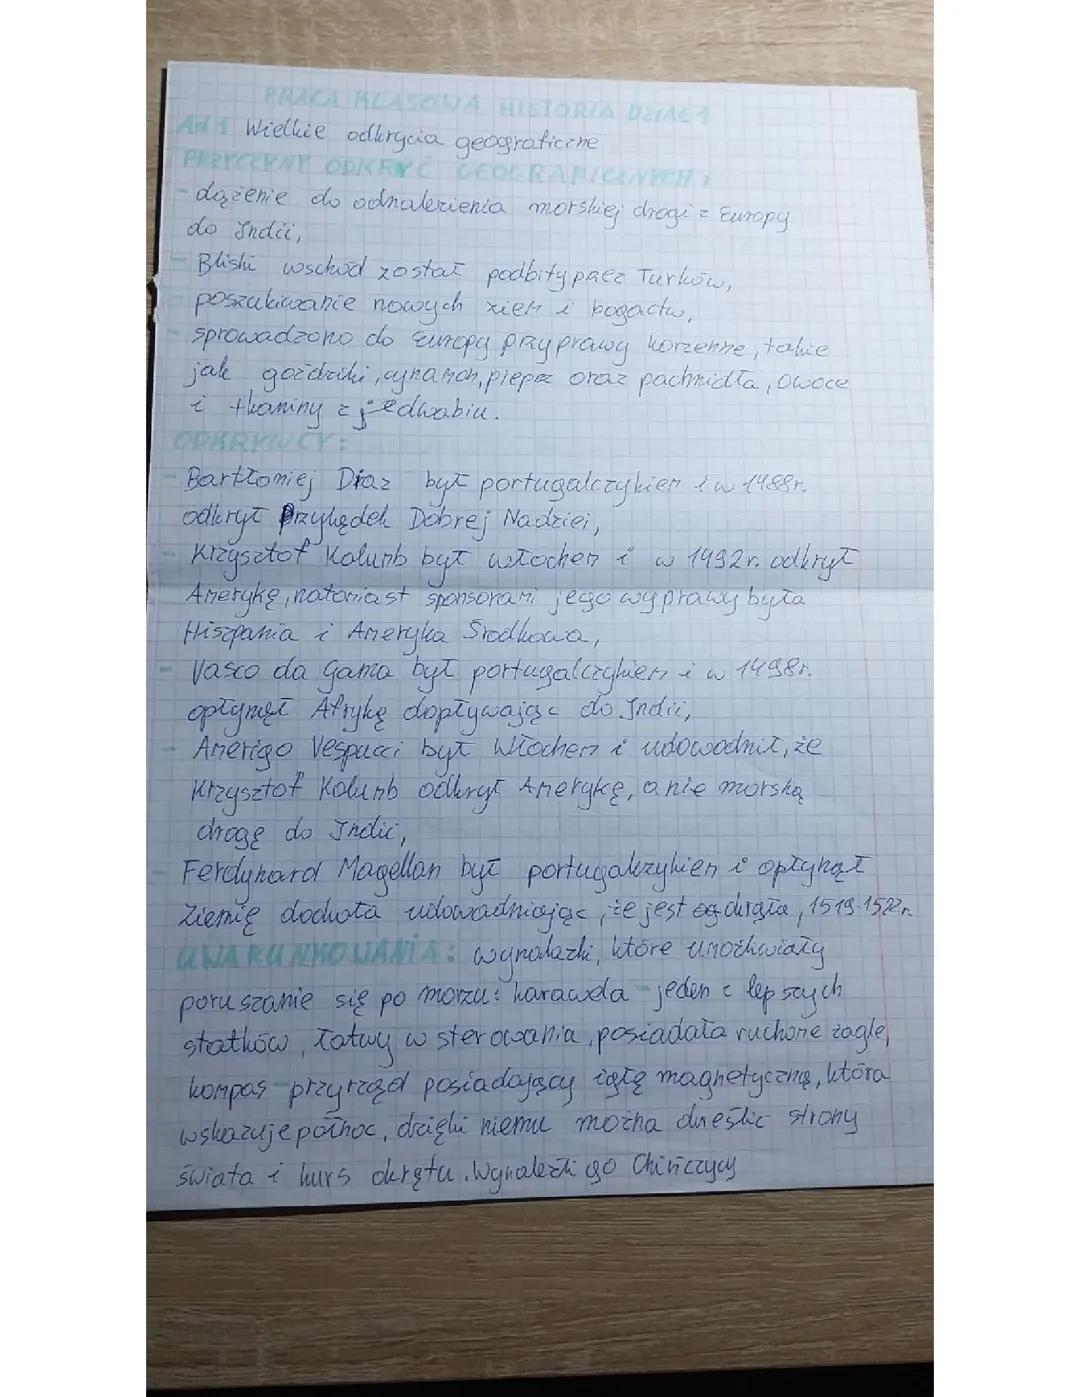 PRACA KLASOWA HISTORIA DZIAŁ 1
Ad 1 Wielkie odkrycia geograficzne
PRZYCZYNY ODKRYĆ GEOGRAFICZNYCH:
- dążenie do odnalezienia morskiej drogi z Europy
do Indii,
- Bliski wschód został podbity przez Turków,
- poszukiwanie nowych ziem i bogactw,
- sprowadzono do Europy przyprawy korzenne, takie
jak goździki, cynamon, pieprz oraz pachnidła, owoce
i tkaniny z jedwabiu.
ODKRYWCY:
- Bartłomiej Diaz był portugalczykiem i w 1488r.
odkrył Przylądek Dobrej Nadziei,
- Krzysztof Kolumb był włochem i w 1492r. odkrył
Amerykę, natomiast sponsorami jego wyprawy była
Hiszpania i Ameryka Środkowa,
- Vasco da Gama był portugalczykiem i w 1498r.
opłynął Afrykę dopływając do Indii,
- Amerigo Vespucci był Włochem i udowodnił, że
Krzysztof Kolumb odkrył Amerykę, a nie morską
drogę do Indii,
- Ferdynand Magellan był portugalczykiem i opłynął
Ziemię dookoła udowadniając, że jest okrągła, 1519-1522r.
UWARUNKOWANIA: wynalazki, które umożliwiały
poruszanie się po morzu: karawela - jeden z lepszych
statków, łatwy w sterowania, posiadała ruchome żagle,
kompas - przyrząd posiadający igłę magnetyczną, która
wskazuje północ, dzięki niemu można określic strony
świata i kurs okrętu. Wynaleźli go Chińczycy